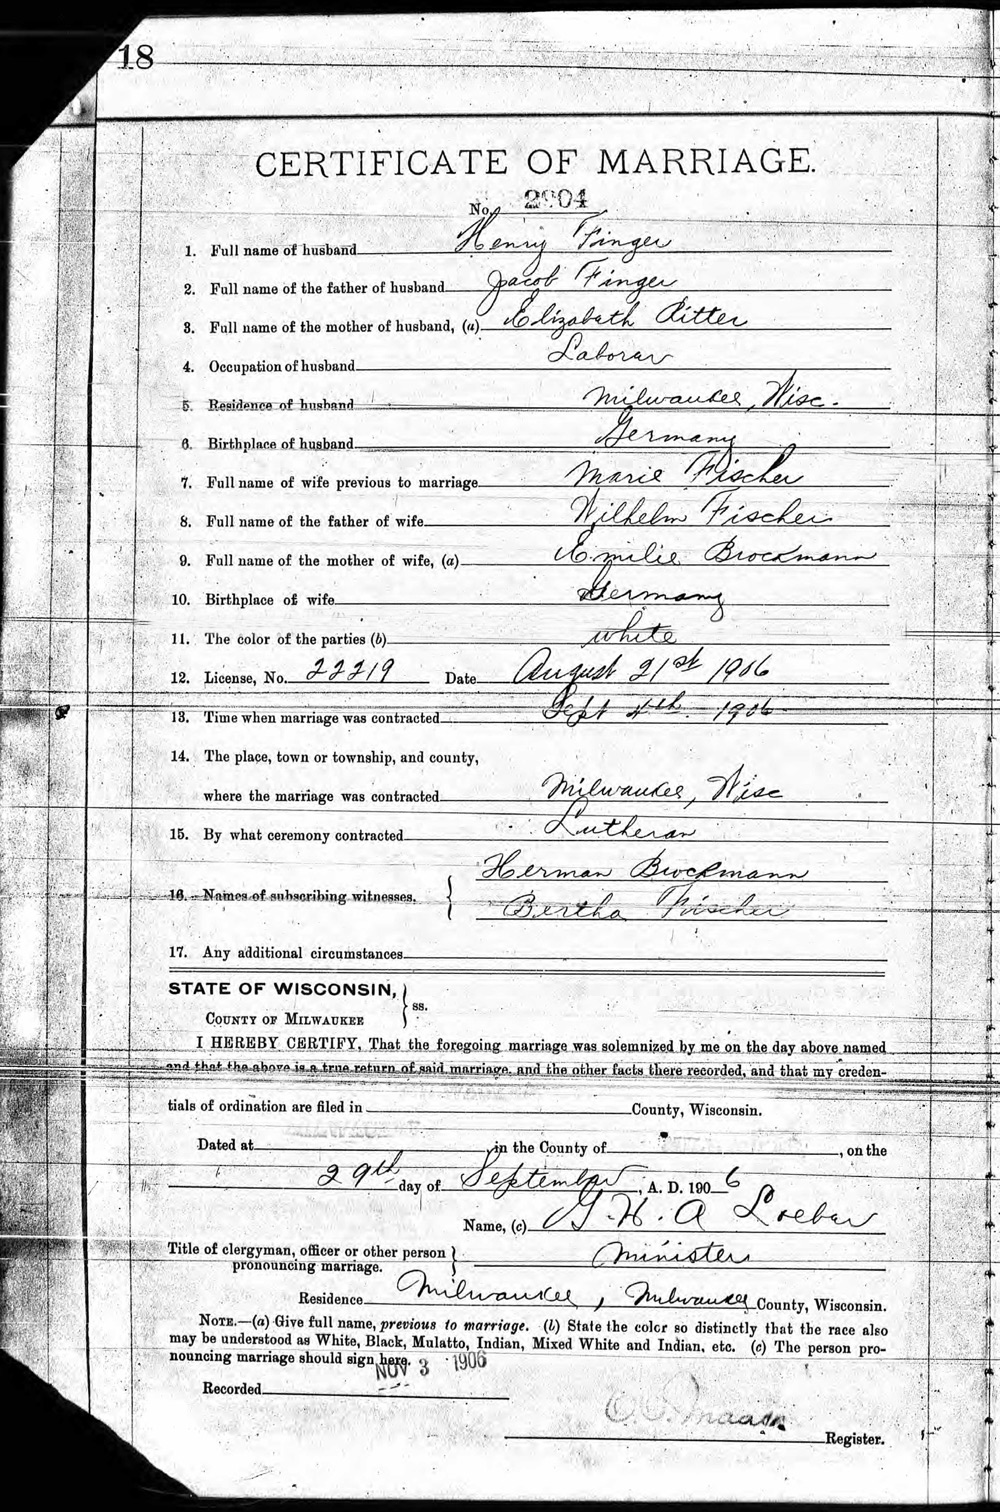 18
CERTIFICATE OF MARRIAGE.
No. 2904
1. Full name of husband Henry Finger
2. Full name of the father of husband Jacob Finger
3. Full name of the mother of husband, (a) Elizabath Ritter
4. Occupation of husband Laborer
5. Residence of husband Milwaukee, Wisc.
6. Birthplace of husband Germany
7. Full name of wife previous to marriage Marie Fischer
8. Full name of the father of wife Wilhelm Fischer
9. Full name of the mother of wife, (a) Emilie Brockmann
10. Birthplace of wife Germany
11. The color of the parties (b) white
12. License, No. 22219 Date August 21st 1906
13. Time when marriage was contracted Sept 4th 1906
14. The place, town or township, and county,
where the marriage was contracted Milwaukee, Wisc
15. By what ceremony contracted Lutheran
Herman Brockmann
16. Names of subscribing witnesses.
Bertha Fischer
17. Any additional circumstances
STATE OF WISCONSIN,
ss.
COUNTY OF MILWAUKEE
I HEREBY CERTIFY, That the foregoing marriage was solemnized by me on the day above named
and that the above is a true return of said marriage, and the other facts there recorded, and that my creden-
tials of ordination are filed in County, Wisconsin.
Dated at in the County of , on the
29th day of September, A. D. 1906
Name, (c) G. H. A Loeber
Title of clergyman, officer or other person
pronouncing marriage. Minister
Residence Milwaukee, Milwaukee County, Wisconsin.
NOTE.—(a) Give full name, previous to marriage. (b) State the color so distinctly that the race also
may be understood as White, Black, Mulatto, Indian, Mixed White and Indian, etc. (c) The person pro-
nouncing marriage should sign here.
NOV 3 1906
Recorded
Register.